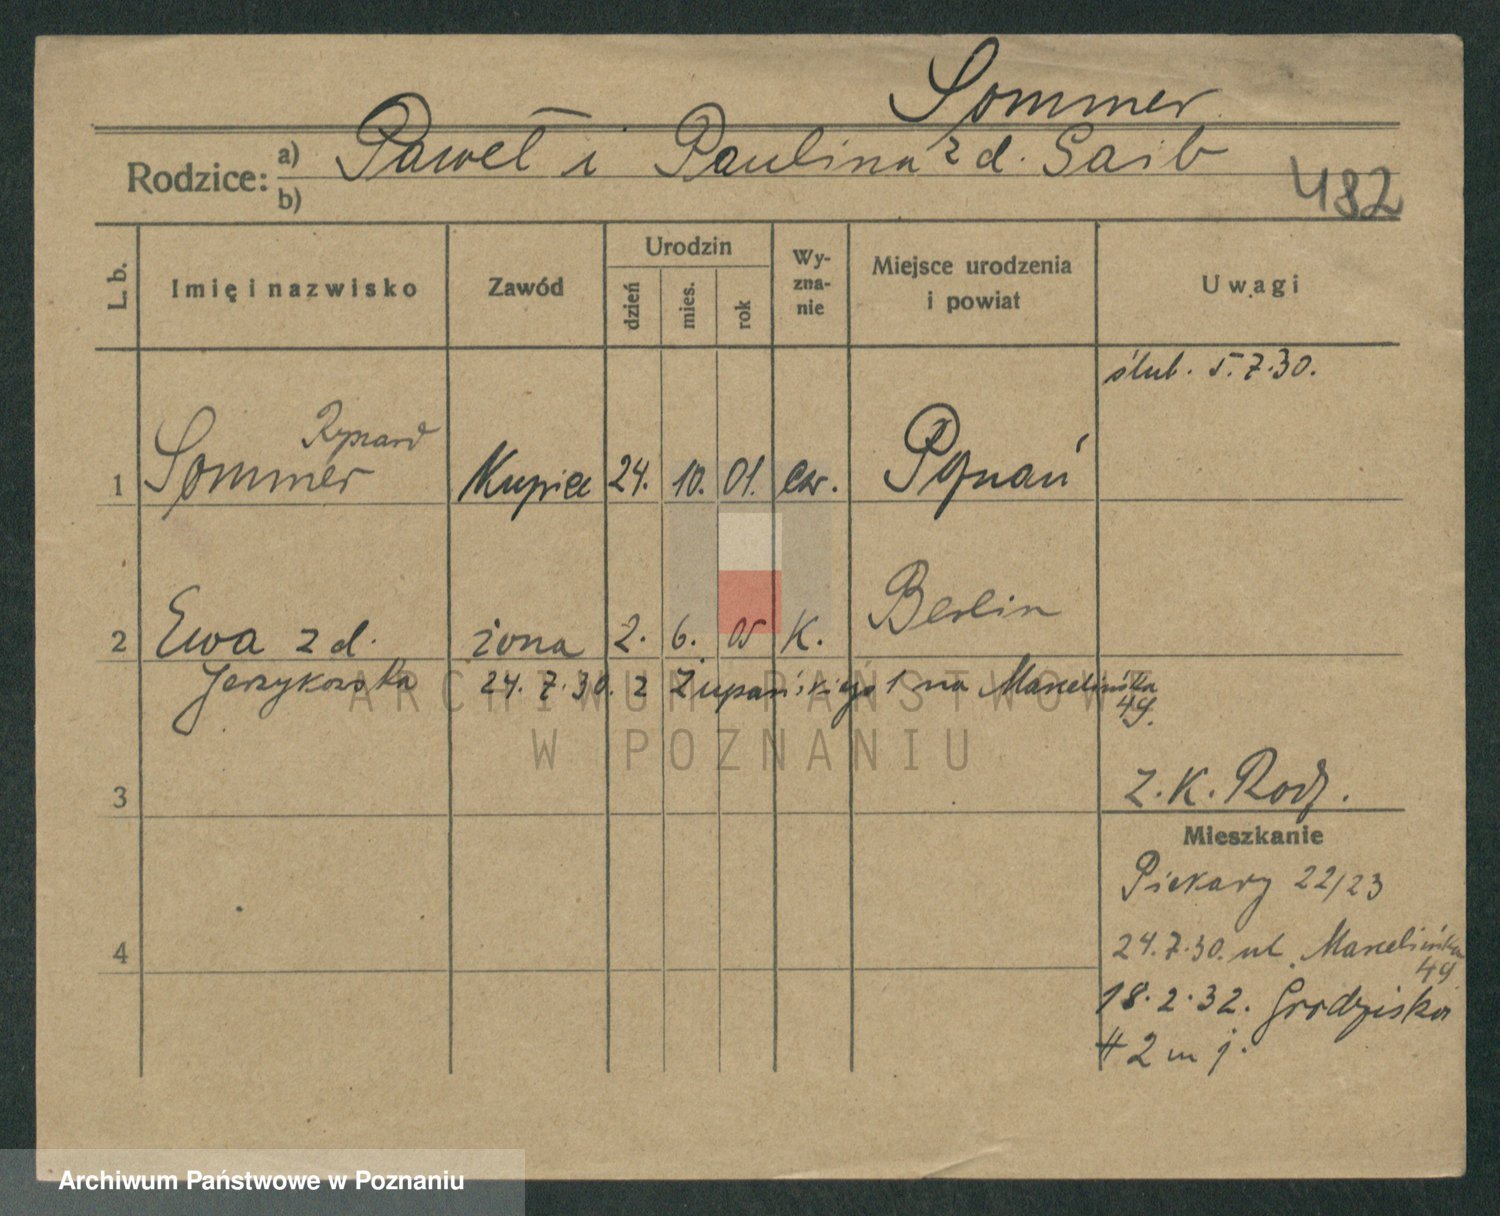 Sommer
Rodzice: a) Paweł i Paulina z d. Saib
b)
482
L. b.
Imię i nazwisko
Zawód
Urodzin
dzień
mies.
rok
Wy-
zna-
nie
Miejsce urodzenia
i powiat
Uwagi
ślub. 5.7.30.
Ryszard
1 Sommer Kupiec 24. 10. 01. ew. Poznań
2 Ewa z d. żona 2. 6. 05 K. Berlin
Jerzykowska 24.7.30. z Żupańskiego 1 na Marcelińska
49.
ARCHIWUM PAŃSTWOWE
W POZNANIU
3
Z.K. Rodz.
Mieszkanie
Piekary 22/23
4
24.7.30. ul. Marcelińska
49
18.2.32. Grodziska
# 2 m j.
Archiwum Państwowe w Poznaniu